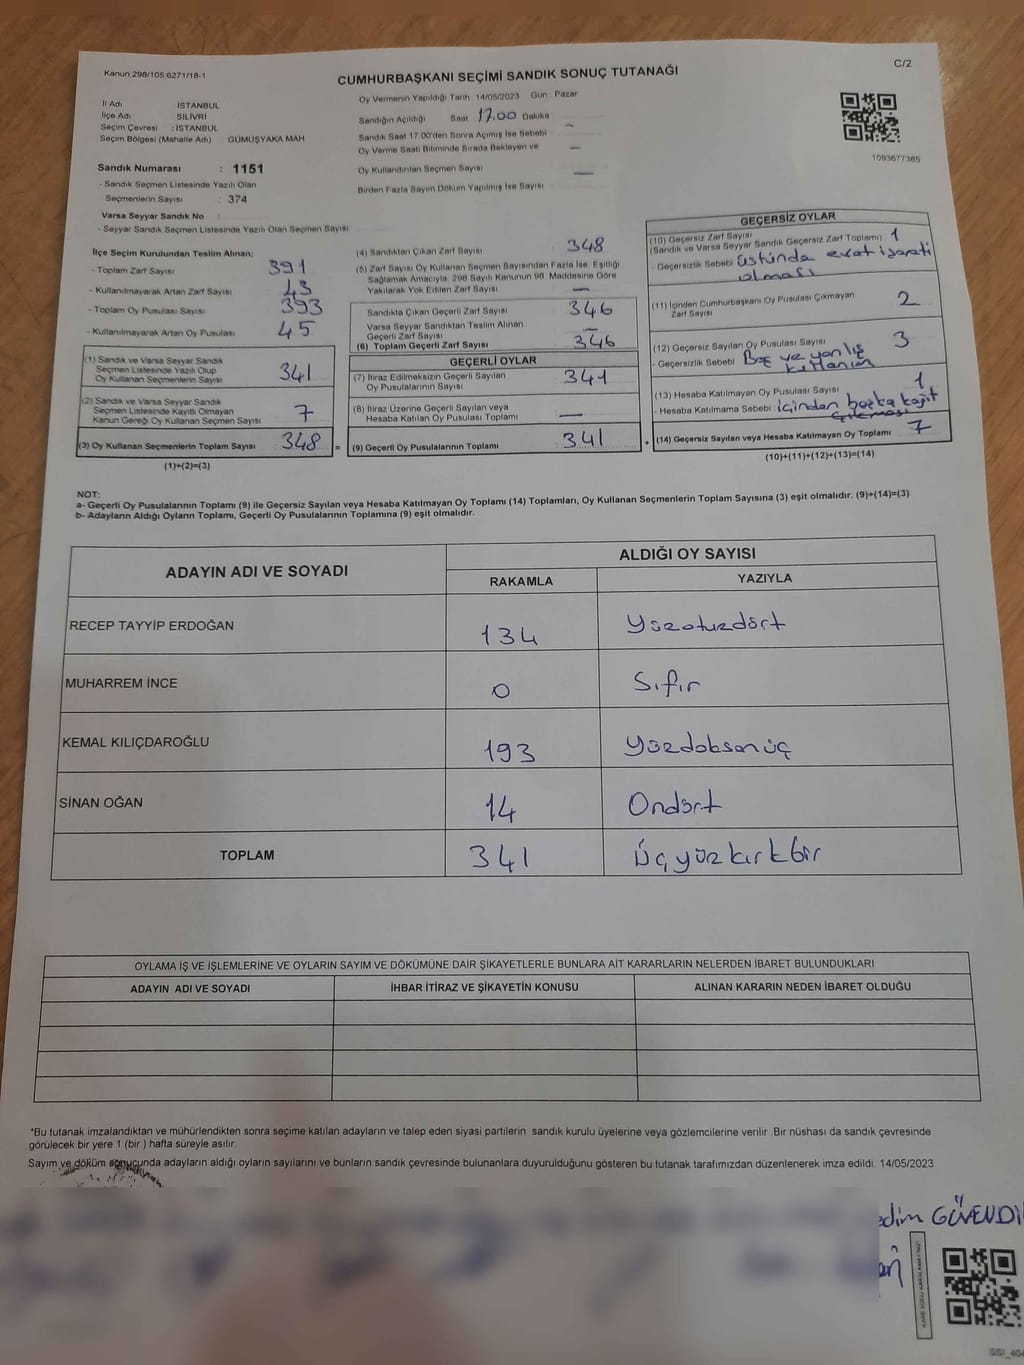 Kanun:298/105:6271/18-1
C/2
CUMHURBAŞKANI SEÇİMİ SANDIK SONUÇ TUTANAĞI
İl Adı İSTANBUL
İlçe Adı SİLİVRİ
Seçim Çevresi : İSTANBUL
Seçim Bölgesi (Mahalle Adı) GÜMÜŞYAKA MAH
Sandık Numarası : 1151
- Sandık Seçmen Listesinde Yazılı Olan
Seçmenlerin Sayısı : 374
Varsa Seyyar Sandık No
- Seyyar Sandık Seçmen Listesinde Yazılı Olan Seçmen Sayısı
Oy Vermenin Yapıldığı Tarih 14/05/2023 Gün : Pazar
Sandığın Açıldığı Saat 17.00 Dakika
Sandık Saat 17:00'den Sonra Açımış İse Sebebi
Oy Verme Saati Bitiminde Sırada Bekleyen ve —
Oy Kullandırılan Seçmen Sayısı —
Birden Fazla Sayım Döküm Yapılmış İse Sayısı
1093677385
İlçe Seçim Kurulundan Teslim Alınan;
- Toplam Zarf Sayısı 391
- Kullanılmayarak Artan Zarf Sayısı 43
- Toplam Oy Pusulası Sayısı 393
- Kullanılmayarak Artan Oy Pusulası 45
(1) Sandık ve Varsa Seyyar Sandık
Seçmen Listesinde Yazılı Olup
Oy Kullanan Seçmenlerin Sayısı 341
(2) Sandık ve Varsa Seyyar Sandık
Seçmen Listesinde Kayıtlı Olmayan
Kanun Gereği Oy Kullanan Seçmen Sayısı 7
(3) Oy Kullanan Seçmenlerin Toplam Sayısı 348 =
(1)+(2)=(3)
(4) Sandıktan Çıkan Zarf Sayısı 348
(5) Zarf Sayısı Oy Kullanan Seçmen Sayısından Fazla İse, Eşitliği
Sağlamak Amacıyla, 298 Sayılı Kanunun 98. Maddesine Göre
Yakılarak Yok Edilen Zarf Sayısı —
Sandıkta Çıkan Geçerli Zarf Sayısı 346
Varsa Seyyar Sandıktan Teslim Alınan
Geçerli Zarf Sayısı —
(6) Toplam Geçerli Zarf Sayısı 346
GEÇERLİ OYLAR
(7) İtiraz Edilmeksizin Geçerli Sayılan
Oy Pusulalarının Sayısı 341
(8) İtiraz Üzerine Geçerli Sayılan veya
Hesaba Katılan Oy Pusulası Toplamı —
(9) Geçerli Oy Pusulalarının Toplamı 341 +
GEÇERSİZ OYLAR
(10) Geçersiz Zarf Sayısı 1
(Sandık ve Varsa Seyyar Sandık Geçersiz Zarf Toplamı)
- Geçersizlik Sebebi üstünde evet işareti
olması
(11) İçinden Cumhurbaşkanı Oy Pusulası Çıkmayan
Zarf Sayısı 2
(12) Geçersiz Sayılan Oy Pusulası Sayısı 3
- Geçersizlik Sebebi Boş ve yanlış
kullanım
(13) Hesaba Katılmayan Oy Pusulası Sayısı 1
- Hesaba Katılmama Sebebi içinden başka kağıt
çıkması
(14) Geçersiz Sayılan veya Hesaba Katılmayan Oy Toplamı 7
(10)+(11)+(12)+(13)=(14)
NOT:
a- Geçerli Oy Pusulalarının Toplamı (9) ile Geçersiz Sayılan veya Hesaba Katılmayan Oy Toplamı (14) Toplamları, Oy Kullanan Seçmenlerin Toplam Sayısına (3) eşit olmalıdır. (9)+(14)=(3)
b- Adayların Aldığı Oyların Toplamı, Geçerli Oy Pusulalarının Toplamına (9) eşit olmalıdır.
ADAYIN ADI VE SOYADI ALDIĞI OY SAYISI
RAKAMLA YAZIYLA
RECEP TAYYİP ERDOĞAN 134 Yüzotuzdört
MUHARREM İNCE 0 Sıfır
KEMAL KILIÇDAROĞLU 193 Yüzdoksanüç
SİNAN OĞAN 14 Ondört
TOPLAM 341 Üçyüzkırkbir
OYLAMA İŞ VE İŞLEMLERİNE VE OYLARIN SAYIM VE DÖKÜMÜNE DAİR ŞİKAYETLERLE BUNLARA AİT KARARLARIN NELERDEN İBARET BULUNDUKLARI
ADAYIN ADI VE SOYADI İHBAR İTİRAZ VE ŞİKAYETİN KONUSU ALINAN KARARIN NEDEN İBARET OLDUĞU
*Bu tutanak imzalandıktan ve mühürlendikten sonra seçime katılan adayların ve talep eden siyasi partilerin sandık kurulu üyelerine veya gözlemcilerine verilir .Bir nüshası da sandık çevresinde
görülecek bir yere 1 (bir ) hafta süreyle asılır.
Sayım ve döküm sonucunda adayların aldığı oyların sayılarını ve bunların sandık çevresinde bulunanlara duyurulduğunu gösteren bu tutanak tarafımızdan düzenlenerek imza edildi. 14/05/2023
edim GÜVENDİ